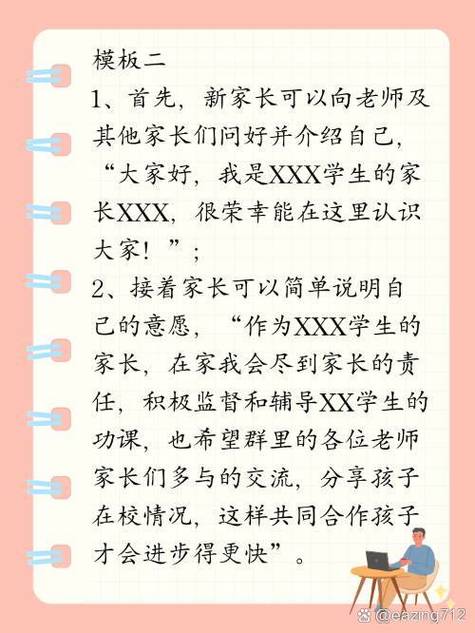 模板二
1、首先，新家长可以向老师及
其他家长们问好并介绍自己，
“大家好，我是XXX学生的家
长XXX，很荣幸能在这里认识
大家！”；
2、接着家长可以简单说明自
己的意愿，“作为XXX学生的
家长，在家我会尽到家长的责
任，积极监督和辅导XX学生的
功课，也希望群里的各位老师
家长们多与的交流，分享孩子
在校情况，这样共同合作孩子
才会进步得更快”。
@eazing712